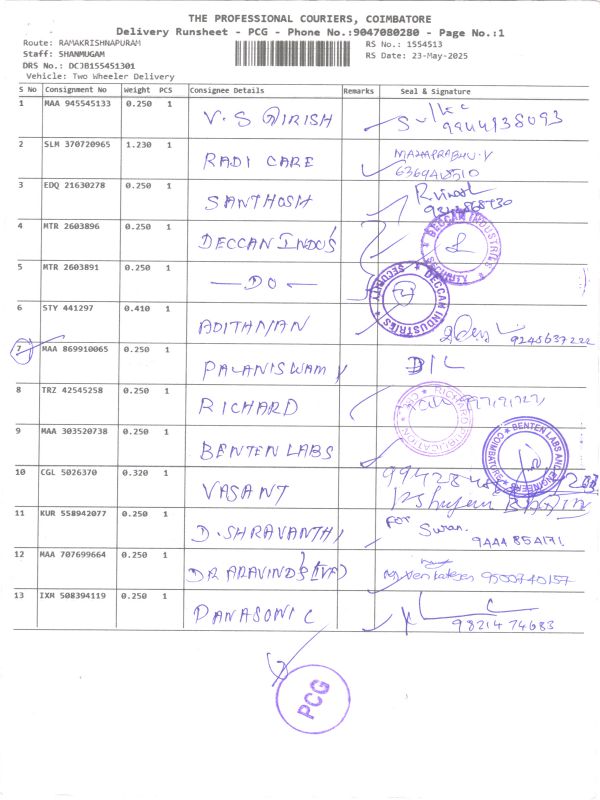 THE PROFESSIONAL COURIERS, COIMBATORE
Delivery Runsheet - PCG - Phone No.:9047080280 - Page No.:1
Route: RAMAKRISHNAPURAM
RS No.: 1554513
Staff: SHANMUGAM
RS Date: 23-May-2025
DRS No.: DCJB155451301
Vehicle: Two Wheeler Delivery
S No Consignment No Weight PCS Consignee Details Remarks Seal & Signature
1 MAA 945545133 0.250 1 V. S GIRISH
2 SLM 370720965 1.230 1 RADI CARE
3 EDQ 21630278 0.250 1 SANTHOSH
4 MTR 2603896 0.250 1 DECCAN INDUS
DECCAN INDUSTRIES SECURITY
5 MTR 2603891 0.250 1 — DO —
DECCAN INDUSTRIES SECURITY
6 STY 441297 0.410 1 9245637222
7 MAA 869910065 0.250 1 PALANISWAMY
8 TRZ 42545258 0.250 1 RICHARD
9 MAA 303520738 0.250 1 BENTEN LABS
BENTEN LABS AND ENGINEERS COIMBATORE
10 CGL 5026370 0.320 1 VASANT
11 KUR 558942077 0.250 1 D. SHRAVANTHI for
9444854171
12 MAA 707699664 0.250 1 DR ARAVIND'S (IVF) 9500740157
13 IXM 508394119 0.250 1 PANASONIC
9821474683
PCG